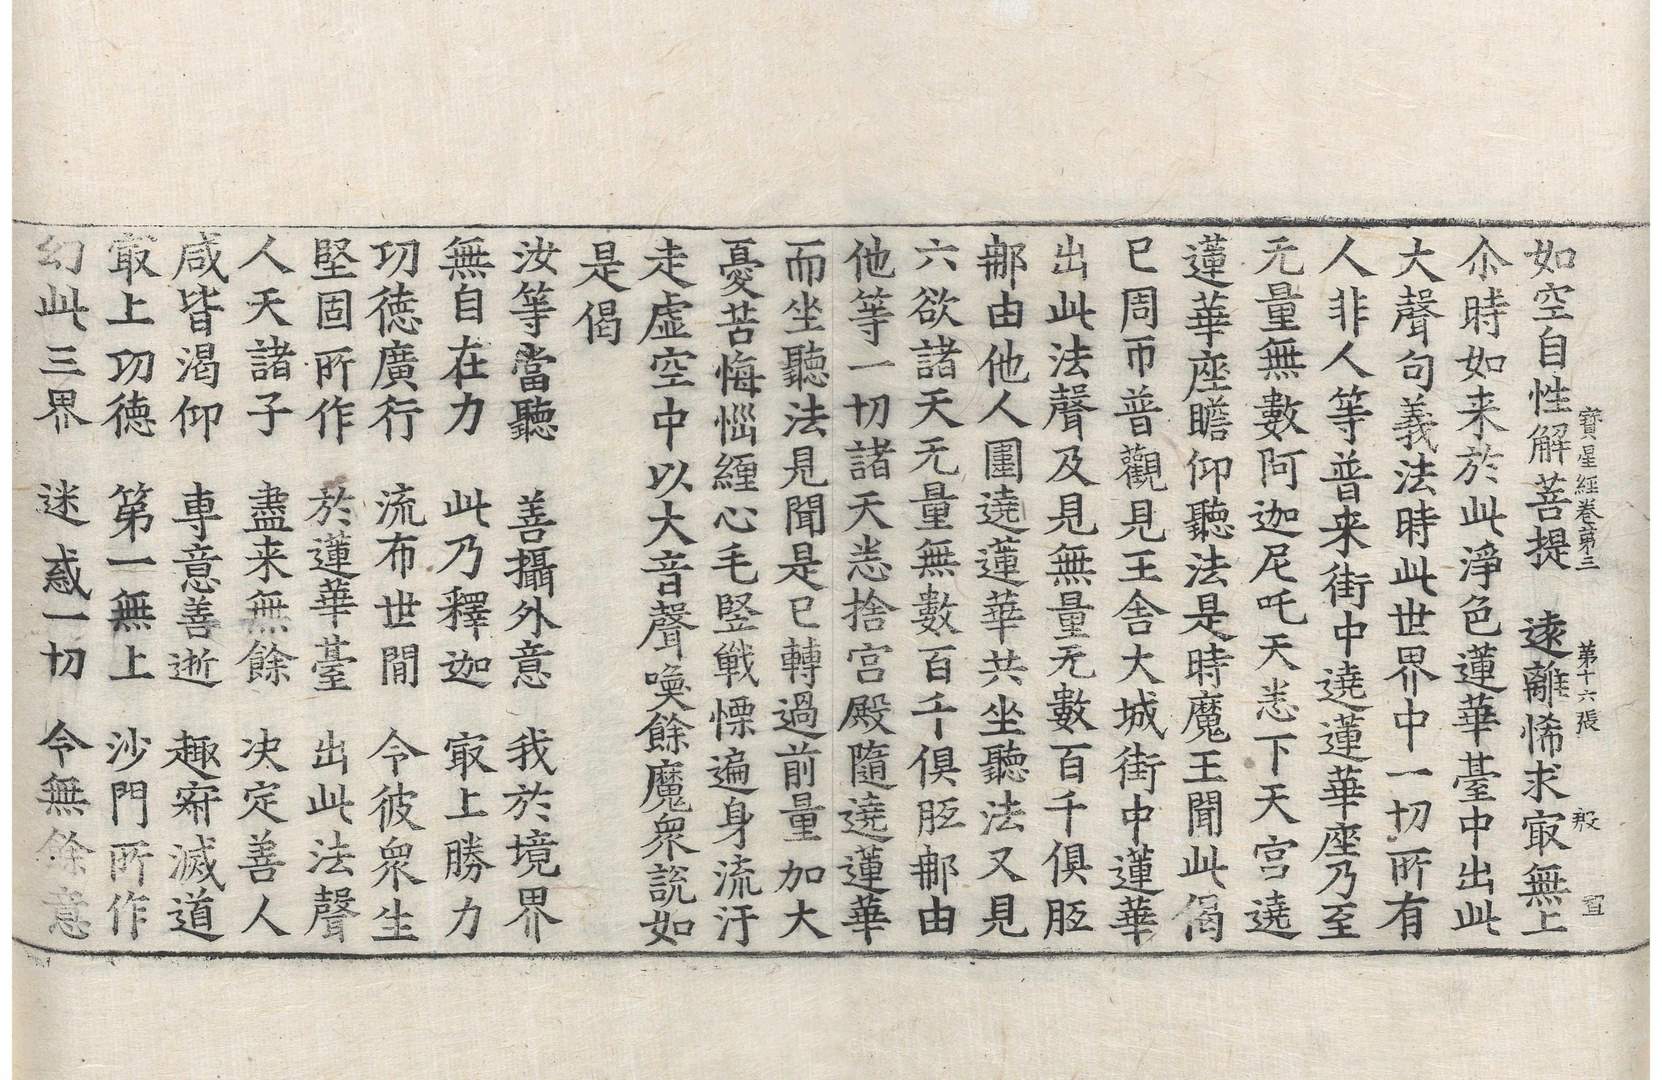 寶星經卷第三　第十六張　殷　宣
如空自性解菩提　遠離悕求㝡無上
尒時如来於此淨色蓮華臺中出此
大聲句義法時此世界中一切所有
人非人等普来街中遶蓮華座乃至
无量無數阿迦尼吒天悉下天宮遶
蓮華座瞻仰聽法是時魔王聞此偈
已周帀普觀見王舍大城街中蓮華
出此法聲及見無量无數百千俱胝
郍由他人圍遶蓮華共坐聽法又見
六欲諸天无量無數百千俱胝郍由
他等一切諸天悉捨宮殿隨遶蓮華
而坐聽法見聞是已轉過前量加大
憂苦悔惱纏心毛竪戰慄遍身流汙
走虛空中以大音聲喚餘魔衆說如
是偈
汝等當聽　善攝外意　我於境界
無自在力　此乃釋迦　㝡上勝力
功德廣行　流布世閒　令彼衆生
堅固所作　於蓮華臺　出此法聲
人天諸子　盡来無餘　决定善人
咸皆渴仰　專意善逝　趣寂滅道
㝡上功徳　第一無上　沙門所作
幻此三界　迷惑一切　令無餘意